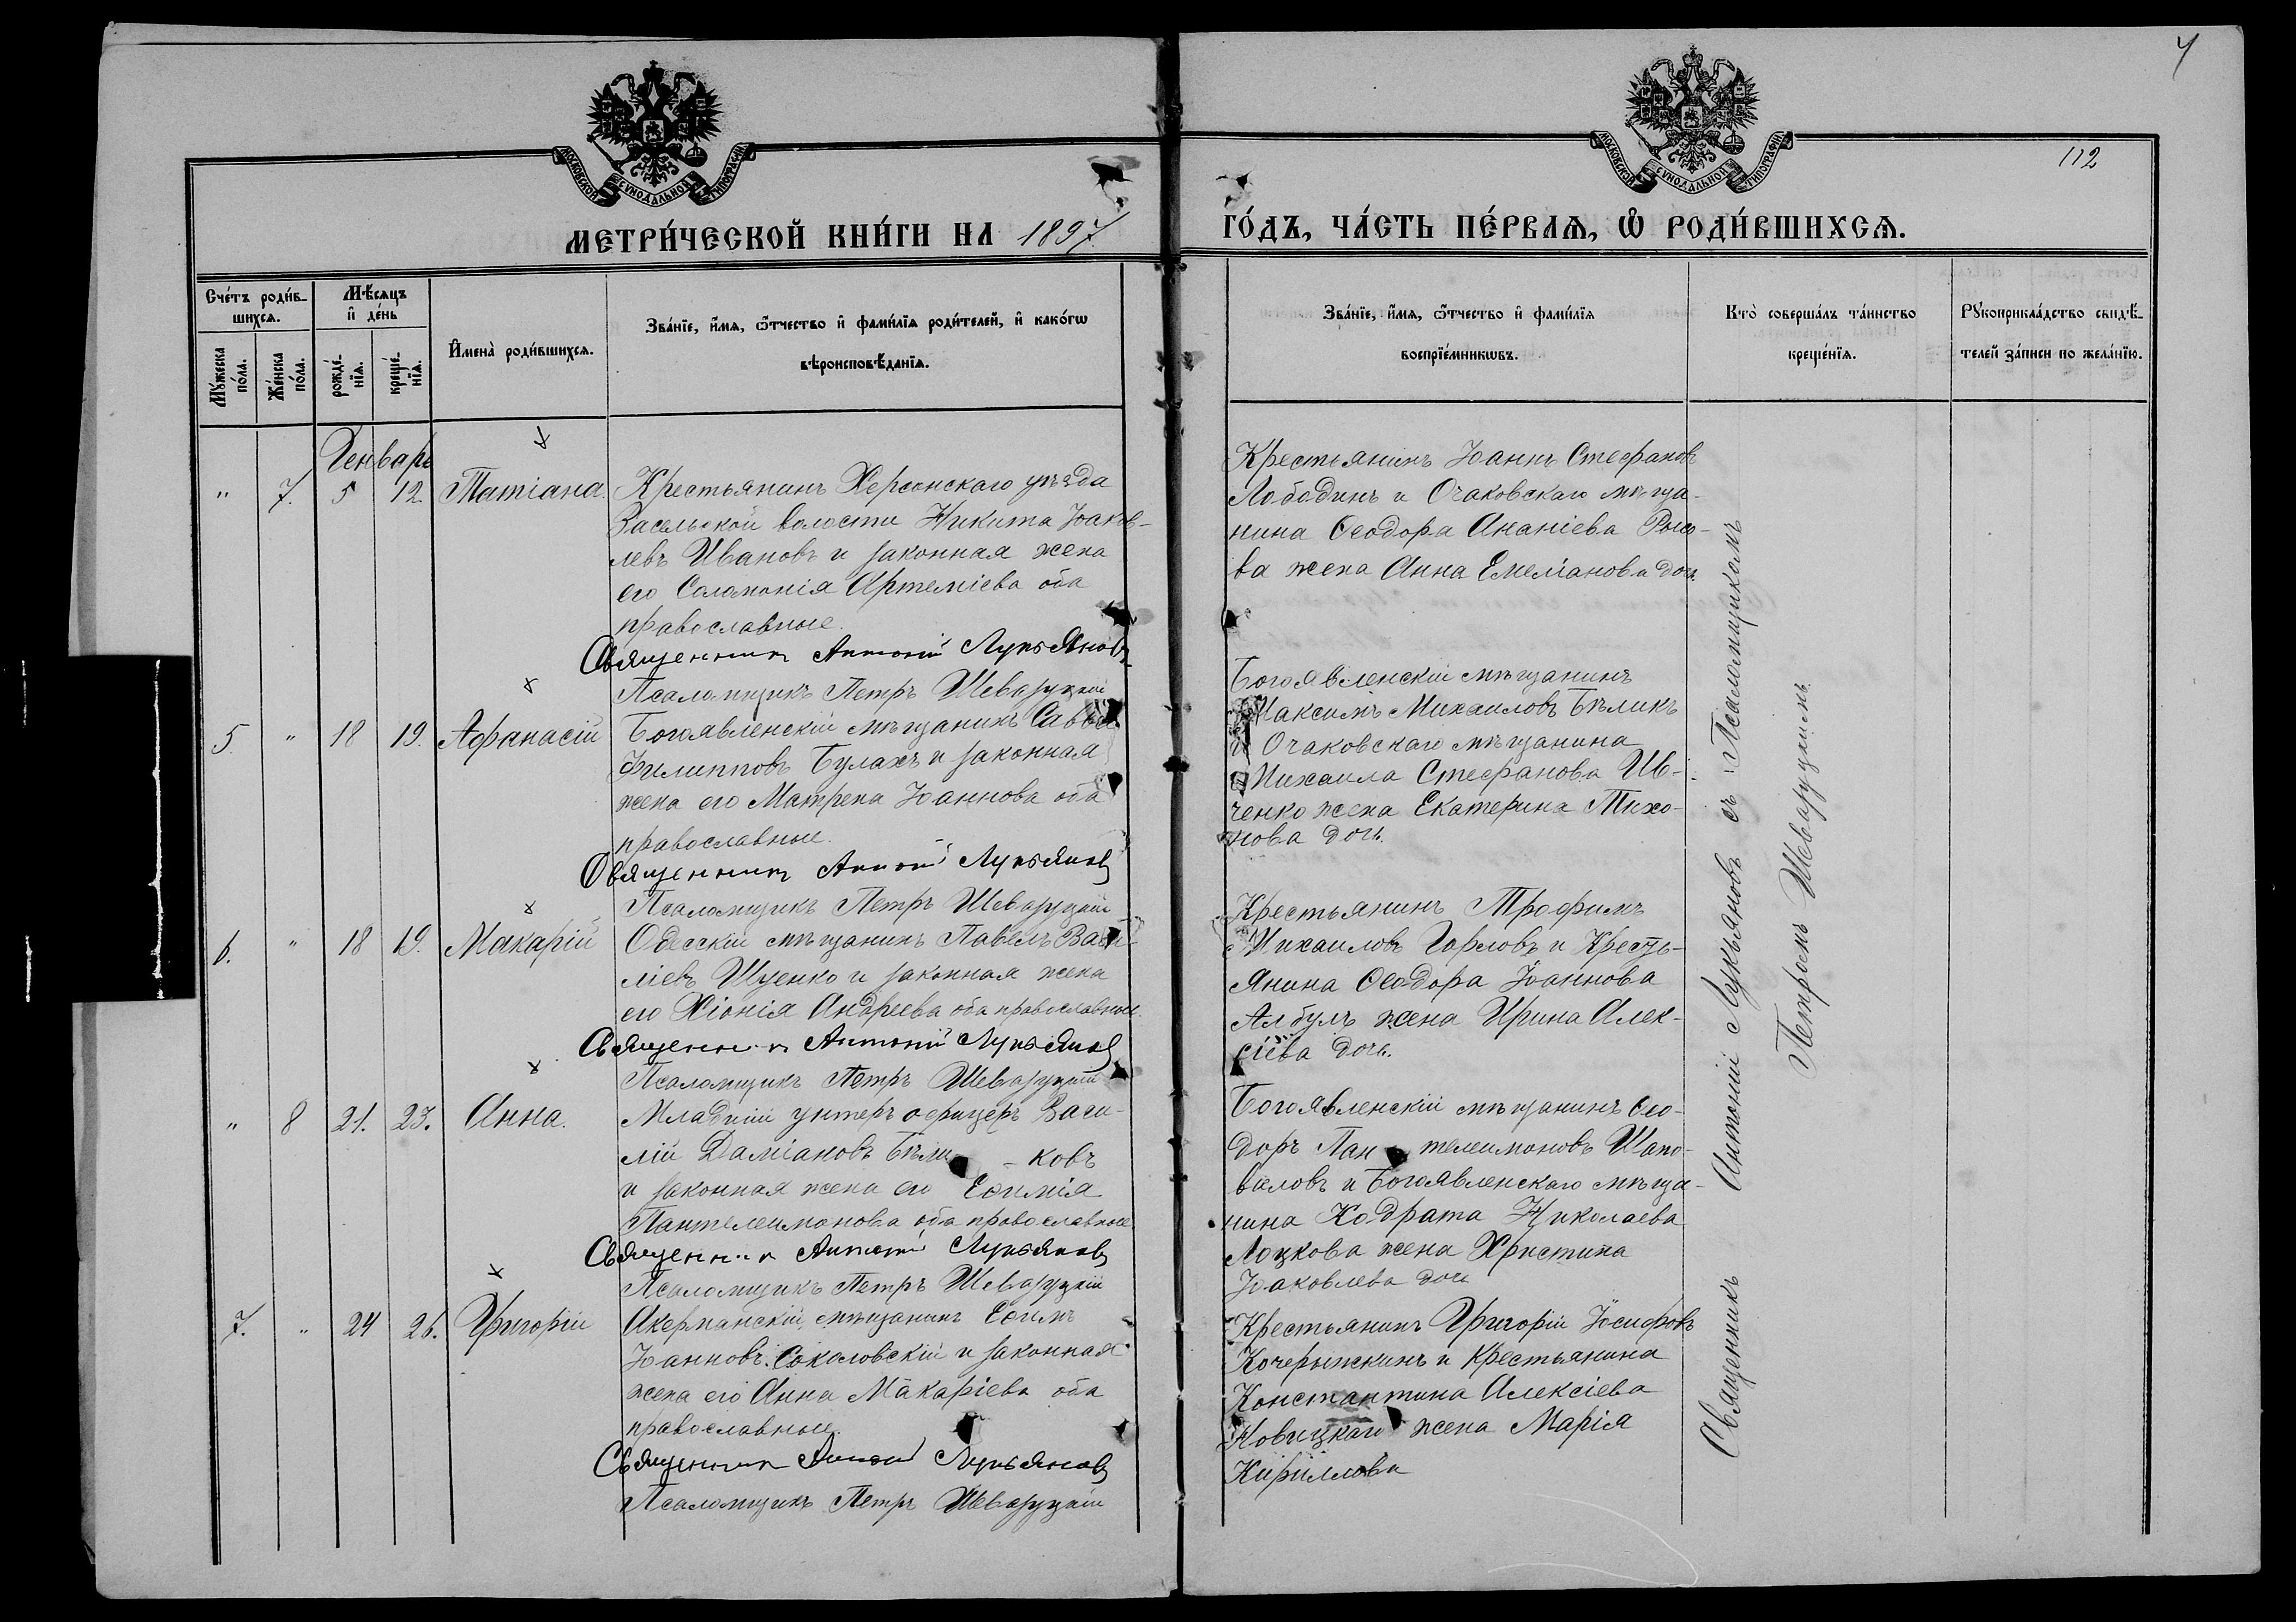 4
112
МОСКОВСКОЙ СѴНОДАЛЬНОЙ ТИПОГРАФІИ
МОСКОВСКОЙ СѴНОДАЛЬНОЙ ТИПОГРАФІИ
МЕТРИ́ЧЕСКОЙ КНИ́ГИ НА 1897 ГО́ДЪ, ЧА́СТЬ ПЕ́РВАѦ, Ѽ РОДИ́ВШИХСѦ.
Сче́тъ роди́в-
шихсѧ.
Мꙋ́жеска по́ла.
Же́нска по́ла.
Мѣ́сѧцъ и҆ де́нь
рожде́-нїѧ.
креще́-нїѧ.
И҆мена̀ роди́вшихсѧ.
Зва́нїе, и҆́мѧ, ѻ҆́тчество и҆ фами́лїѧ роди́телей, и҆ како́гѡ
вѣроисповѣ́данїѧ.
Зва́нїе, и҆́мѧ, ѻ҆́тчество и҆ фами́лїѧ
воспрїе́мникѡвъ.
Кто̀ соверша́лъ та́инство
креще́нїѧ.
Рꙋкоприкла́дство свидѣ́-
телей за́писи по жела́нїю.
Генварь
" 7. 5 12. Татіана.
Крестьянинъ Херсонскаго уѣзда
Засельской волости Никита Іаков-
левъ Ивановъ и законная жена
его Соломонія Артеміева оба
православные.
Священникъ Антоній Лукьяновъ
Псаломщикъ Петръ Шеваруцкій
Крестьянинъ Іоаннъ Стефановъ
Лободинъ и Очаковскаго мѣща-
нина Ѳеодора Ананіева
жена Анна Емеліанова дочь.
5. " 18 19. Афанасій
Богоявленскій мѣщанинъ Савва
Филипповъ Булахъ и законная
жена его Матрена Іоаннова оба
православные.
Священникъ Антоній Лукьяновъ
Псаломщикъ Петръ Шеваруцкій
Богоявленскій мѣщанинъ
Максимъ Михаиловъ Бѣликъ
и Очаковскаго мѣщанина
Михаила Стефанова Ив-
ченко жена Екатерина Тихо-
нова дочь.
6. " 18 19. Макарій
Одесскій мѣщанинъ Павелъ Васи-
ліевъ Ищенко и законная жена
его Хіонія Андреева оба православные.
Священникъ Антоній Лукьяновъ
Псаломщикъ Петръ Шеваруцкій
Крестьянинъ Трофимъ
Михаиловъ Горловъ и Кресть-
янина Ѳеодора Іоаннова
Албулъ жена Ирина Алек-
сіева дочь.
" 8 21. 23. Анна.
Младшій унтеръ офицеръ Васи-
лій Даміановъ Бѣли - ковъ
и законная жена его Евѳимія
Пантелеимонова оба православные
Священникъ Антоній Лукьяновъ
Псаломщикъ Петръ Шеваруцкій
Богоявленскій мѣщанинъ Ѳео-
доръ Пан телеимоновъ Шапо-
валовъ и Богоявленскаго мѣща-
нина Кодрата Николаева
Лоцкова жена Христина
Іаковлева дочь
7. " 24 26. Григорій
Акерманскій мѣщанинъ Евѳимъ
Іоанновъ Соколовскій и законная
жена его Анна Макаріева оба
православные.
Священникъ Антоній Лукьяновъ
Псаломщикъ Петръ Шеваруцкій
Крестьянинъ Григорій Іосифовъ
Кочерыжкинъ и Крестьянина
Константина Алексіева
Новицкаго жена Марія
Кириллова
Священникъ Антоній Лукьяновъ съ Псаломщикомъ
Петромъ Шеваруцкимъ